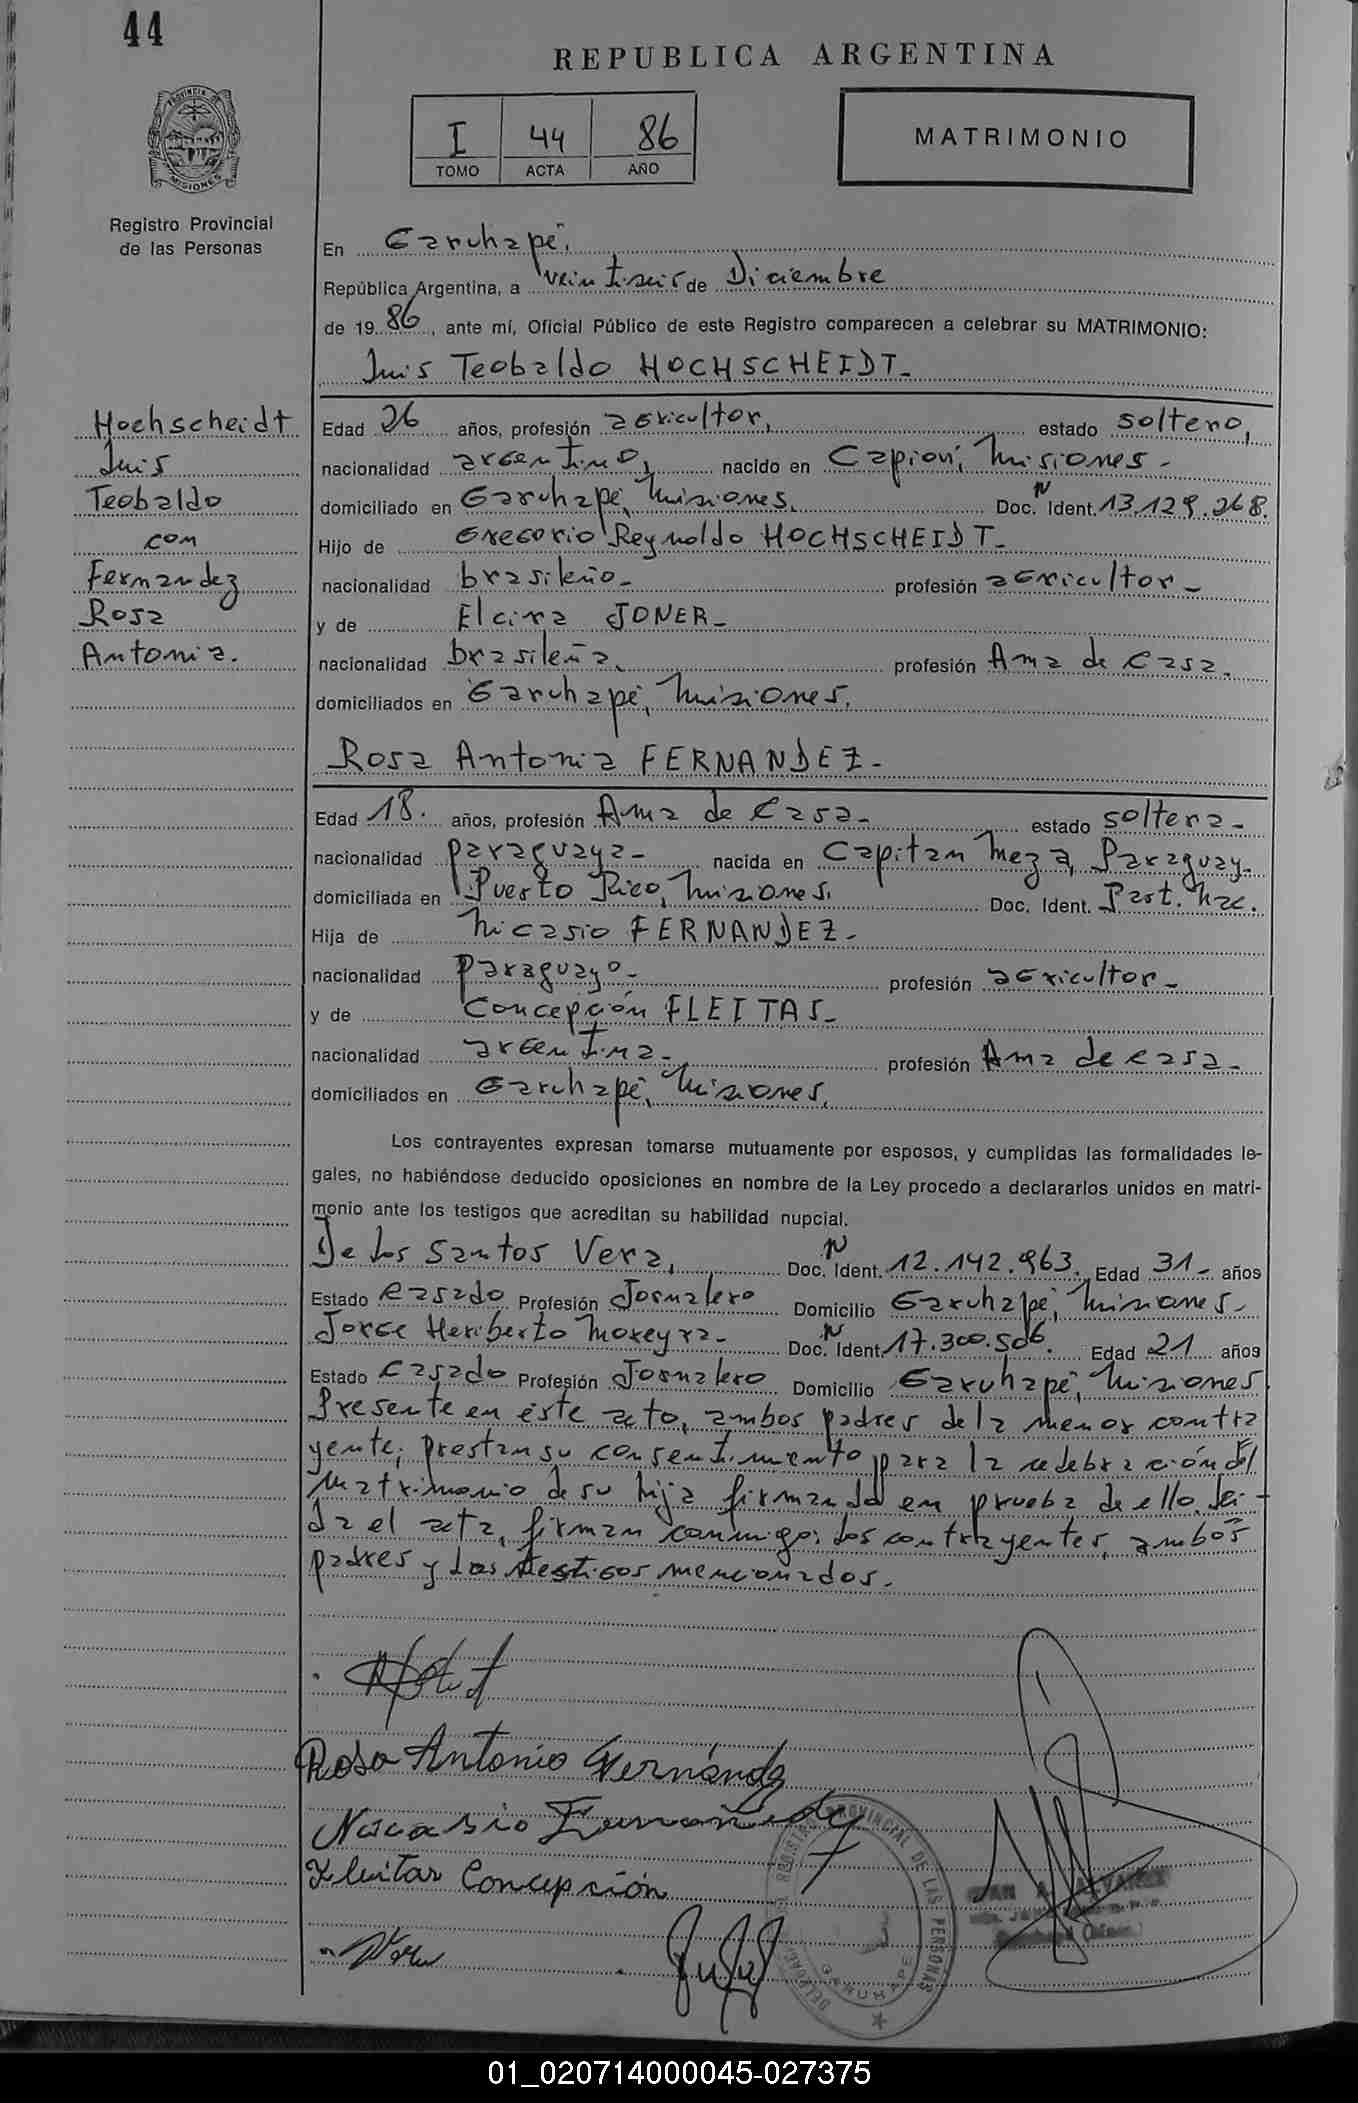 44
REPUBLICA ARGENTINA
I 44 86
TOMO ACTA AÑO
MATRIMONIO
PROVINCIA DE MISIONES
Registro Provincial
de las Personas
En Garuhapé,
República Argentina, a veintiseis de Diciembre
de 19 86, ante mí, Oficial Público de este Registro comparecen a celebrar su MATRIMONIO:
Luis Teobaldo HOCHSCHEIDT-
Hochscheidt
Luis
Teobaldo
con
Fernandez
Rosa
Antonia.
Edad 26 años, profesión agricultor, estado soltero,
nacionalidad argentino, nacido en Capioví, Misiones-
domiciliado en Garuhapé, Misiones. Doc. N Ident. 13.129.268.
Hijo de Gregorio Reynoldo HOCHSCHEIDT-
nacionalidad brasileño- profesión agricultor-
y de Elcira JONER-
nacionalidad brasileña, profesión Ama de casa.
domiciliados en Garuhapé, Misiones.
Rosa Antonia FERNANDEZ-
Edad 18. años, profesión Ama de casa- estado soltera-
nacionalidad paraguaya- nacida en Capitan Meza, Paraguay.
domiciliada en Puerto Rico, Misiones. Doc. Ident. Part. Nac.
Hija de Nicasio FERNANDEZ-
nacionalidad paraguayo- profesión agricultor-
y de Concepción FLEITAS-
nacionalidad argentina- profesión Ama de casa-
domiciliados en Garuhapé, Misiones,
Los contrayentes expresan tomarse mutuamente por esposos, y cumplidas las formalidades le-
gales, no habiéndose deducido oposiciones en nombre de la Ley procedo a declararlos unidos en matri-
monio ante los testigos que acreditan su habilidad nupcial.
De los Santos Vera, Doc. N Ident. 12.142.963. Edad 31- años
Estado casado Profesión Jornalero Domicilio Garuhapé, Misiones-
Jorge Heriberto Moreyra- Doc. N Ident. 17.300.506. Edad 21 años
Estado casado Profesión Jornalero Domicilio Garuhapé, Misiones
Presente en éste acto, ambos padres de la menor contra
yente, prestan su consentimiento para la celebración del
matrimonio de su hija firmando en prueba de ello. Lei-
da el acta, firman conmigo: los contrayentes, ambos
padres y los testigos mencionados.
Rosa Antonia Fernández
Nicasio Fernandez
Fleitas Concepción
REGISTRO PROVINCIAL DE LAS PERSONAS
DELEGACION
GARUHAPE
01_020714000045-027375